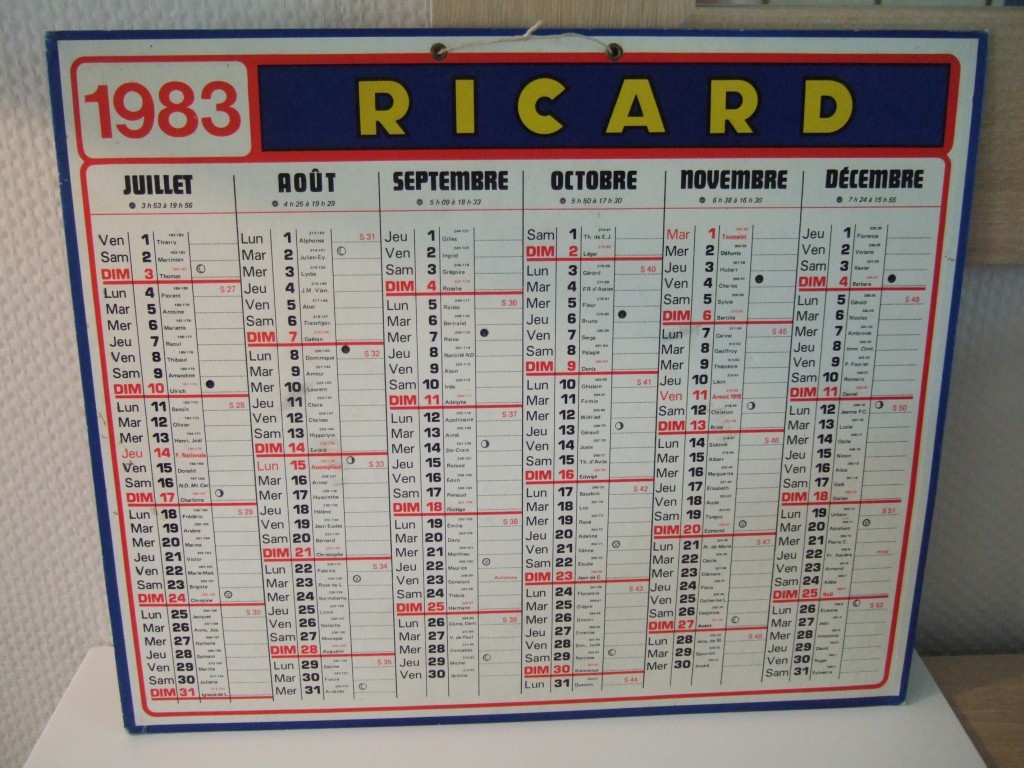 1983
RICARD
JUILLET
3 h 53 à 19 h 56
Ven 1 Thierry
Sam 2 Martinien
DIM 3 Thomas
Lun 4 Florent S 27
Mar 5 Antoine
Mer 6 Mariette
Jeu 7 Raoul
Ven 8 Thibaut
Sam 9 Amandine
DIM 10 Ulrich
Lun 11 Benoît S 28
Mar 12 Olivier
Mer 13 Henri, Joël
Jeu 14 F. Nationale
Ven 15 Donald
Sam 16 N.D. Mt. Car.
DIM 17 Charlotte
Lun 18 Frédéric S 29
Mar 19 Arsène
Mer 20 Marina
Jeu 21 Victor
Ven 22 Marie-Mad.
Sam 23 Brigitte
DIM 24 Christine
Lun 25 Jacques S 30
Mar 26 Anne, Joa.
Mer 27 Nathalie
Jeu 28 Samson
Ven 29 Marthe
Sam 30 Juliette
DIM 31 Ignace de L.
AOÛT
4 h 25 à 19 h 29
Lun 1 Alphonse S 31
Mar 2 Julien-Ey.
Mer 3 Lydie
Jeu 4 J.M. Vian.
Ven 5 Abel
Sam 6 Transfigur.
DIM 7 Gaétan
Lun 8 Dominique S 32
Mar 9 Amour
Mer 10 Laurent
Jeu 11 Claire
Ven 12 Clarisse
Sam 13 Hippolyte
DIM 14 Evrard
Lun 15 Assomption S 33
Mar 16 Armel
Mer 17 Hyacinthe
Jeu 18 Hélène
Ven 19 Jean Eudes
Sam 20 Bernard
DIM 21 Christophe
Lun 22 Fabrice S 34
Mar 23 Rose de L.
Mer 24 Barthélemy
Jeu 25 Louis
Ven 26 Natacha
Sam 27 Monique
DIM 28 Augustin
Lun 29 Sabine S 35
Mar 30 Fiacre
Mer 31 Aristide
SEPTEMBRE
5 h 09 à 18 h 33
Jeu 1 Gilles
Ven 2 Ingrid
Sam 3 Grégoire
DIM 4 Rosalie
Lun 5 Raïssa S 36
Mar 6 Bertrand
Mer 7 Reine
Jeu 8 Nativité ND
Ven 9 Alain
Sam 10 Inès
DIM 11 Adelphe
Lun 12 Apollinaire S 37
Mar 13 Aimé
Mer 14 Ste Croix
Jeu 15 Roland
Ven 16 Edith
Sam 17 Renaud
DIM 18 Nadège
Lun 19 Emilie S 38
Mar 20 Davy
Mer 21 Matthieu
Jeu 22 Maurice
Ven 23 Constant Automne
Sam 24 Thècle
DIM 25 Hermann
Lun 26 Côme, Dam. S 39
Mar 27 V. de Paul
Mer 28 Venceslas
Jeu 29 Michel
Ven 30 Jérôme
OCTOBRE
5 h 50 à 17 h 30
Sam 1 Th. de E.J.
DIM 2 Léger
Lun 3 Gérard S 40
Mar 4 F.R. d'Assise
Mer 5 Fleur
Jeu 6 Bruno
Ven 7 Serge
Sam 8 Pélagie
DIM 9 Denis
Lun 10 Ghislain S 41
Mar 11 Firmin
Mer 12 Wilfried
Jeu 13 Géraud
Ven 14 Juste
Sam 15 Th. d'Avila
DIM 16 Edwige
Lun 17 Baudoin S 42
Mar 18 Luc
Mer 19 René
Jeu 20 Adeline
Ven 21 Céline
Sam 22 Elodie
DIM 23 Jean de C.
Lun 24 Florentin S 43
Mar 25 Crépin
Mer 26 Dimitri
Jeu 27 Emeline
Ven 28 Sim., Jude
Sam 29 Narcisse
DIM 30 Bienvenue
Lun 31 Quentin S 44
NOVEMBRE
6 h 38 à 16 h 30
Mar 1 Toussaint
Mer 2 Défunts
Jeu 3 Hubert
Ven 4 Charles
Sam 5 Sylvie
DIM 6 Bertille
Lun 7 Carine S 45
Mar 8 Geoffroy
Mer 9 Théodore
Jeu 10 Léon
Ven 11 Armist. 1918
Sam 12 Christian
DIM 13 Brice
Lun 14 Sidoine S 46
Mar 15 Albert
Mer 16 Marguerite
Jeu 17 Elisabeth
Ven 18 Aude
Sam 19 Tanguy
DIM 20 Edmond
Lun 21 Pr. de Marie S 47
Mar 22 Cécile
Mer 23 Clément
Jeu 24 Flora
Ven 25 Catherine L.
Sam 26 Delphine
DIM 27 Avent
Lun 28 Jacq. de M. S 48
Mar 29 Saturnin
Mer 30 André
DÉCEMBRE
7 h 24 à 15 h 55
Jeu 1 Florence
Ven 2 Viviane
Sam 3 Xavier
DIM 4 Barbara
Lun 5 Gérald S 49
Mar 6 Nicolas
Mer 7 Ambroise
Jeu 8 Imm. Conc.
Ven 9 P. Fourier
Sam 10 Romaric
DIM 11 Daniel
Lun 12 Jeanne F.C. S 50
Mar 13 Lucie
Mer 14 Odile
Jeu 15 Ninon
Ven 16 Alice
Sam 17 Gaël
DIM 18 Gatien
Lun 19 Urbain S 51
Mar 20 Abraham
Mer 21 Pierre C.
Jeu 22 Fr. Xavière HIVER
Ven 23 Armand
Sam 24 Adèle
DIM 25 Noël
Lun 26 Etienne S 52
Mar 27 Jean
Mer 28 Innocents
Jeu 29 David
Ven 30 Roger
Sam 31 Sylvestre